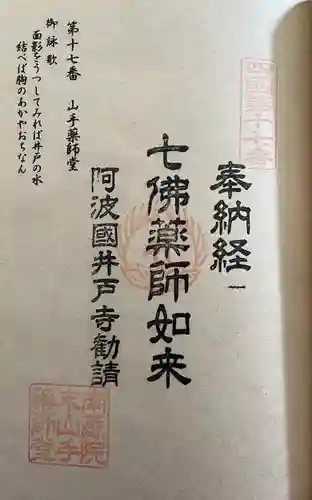 四国第十七番
奉納経
七佛薬師如来
阿波國井戸寺勧請
第十七番 山手薬師堂
御詠歌
面影をうつしてみれば井戸の水
結べば胸のあかやおちなん